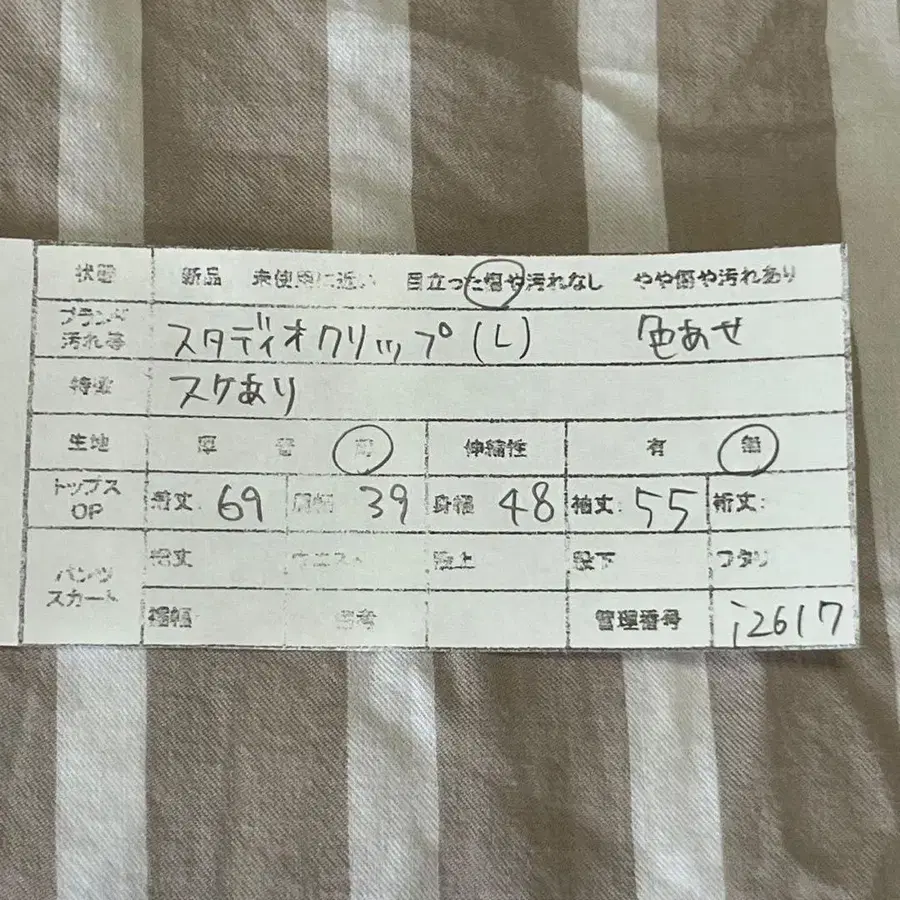 状態 新品 未使用に近い 目立った傷や汚れなし やや傷や汚れあり
ブランド
汚れ等 スタディオクリップ(L) 色あせ
特徴 スケあり
生地 厚 普 薄 伸縮性 有 無
トップス
OP 着丈: 69 肩幅 39 身幅 48 袖丈: 55 裄丈:
パンツ
スカート 総丈 ウエスト 股上 股下 ワタリ
裾幅 備考 管理番号 i2617